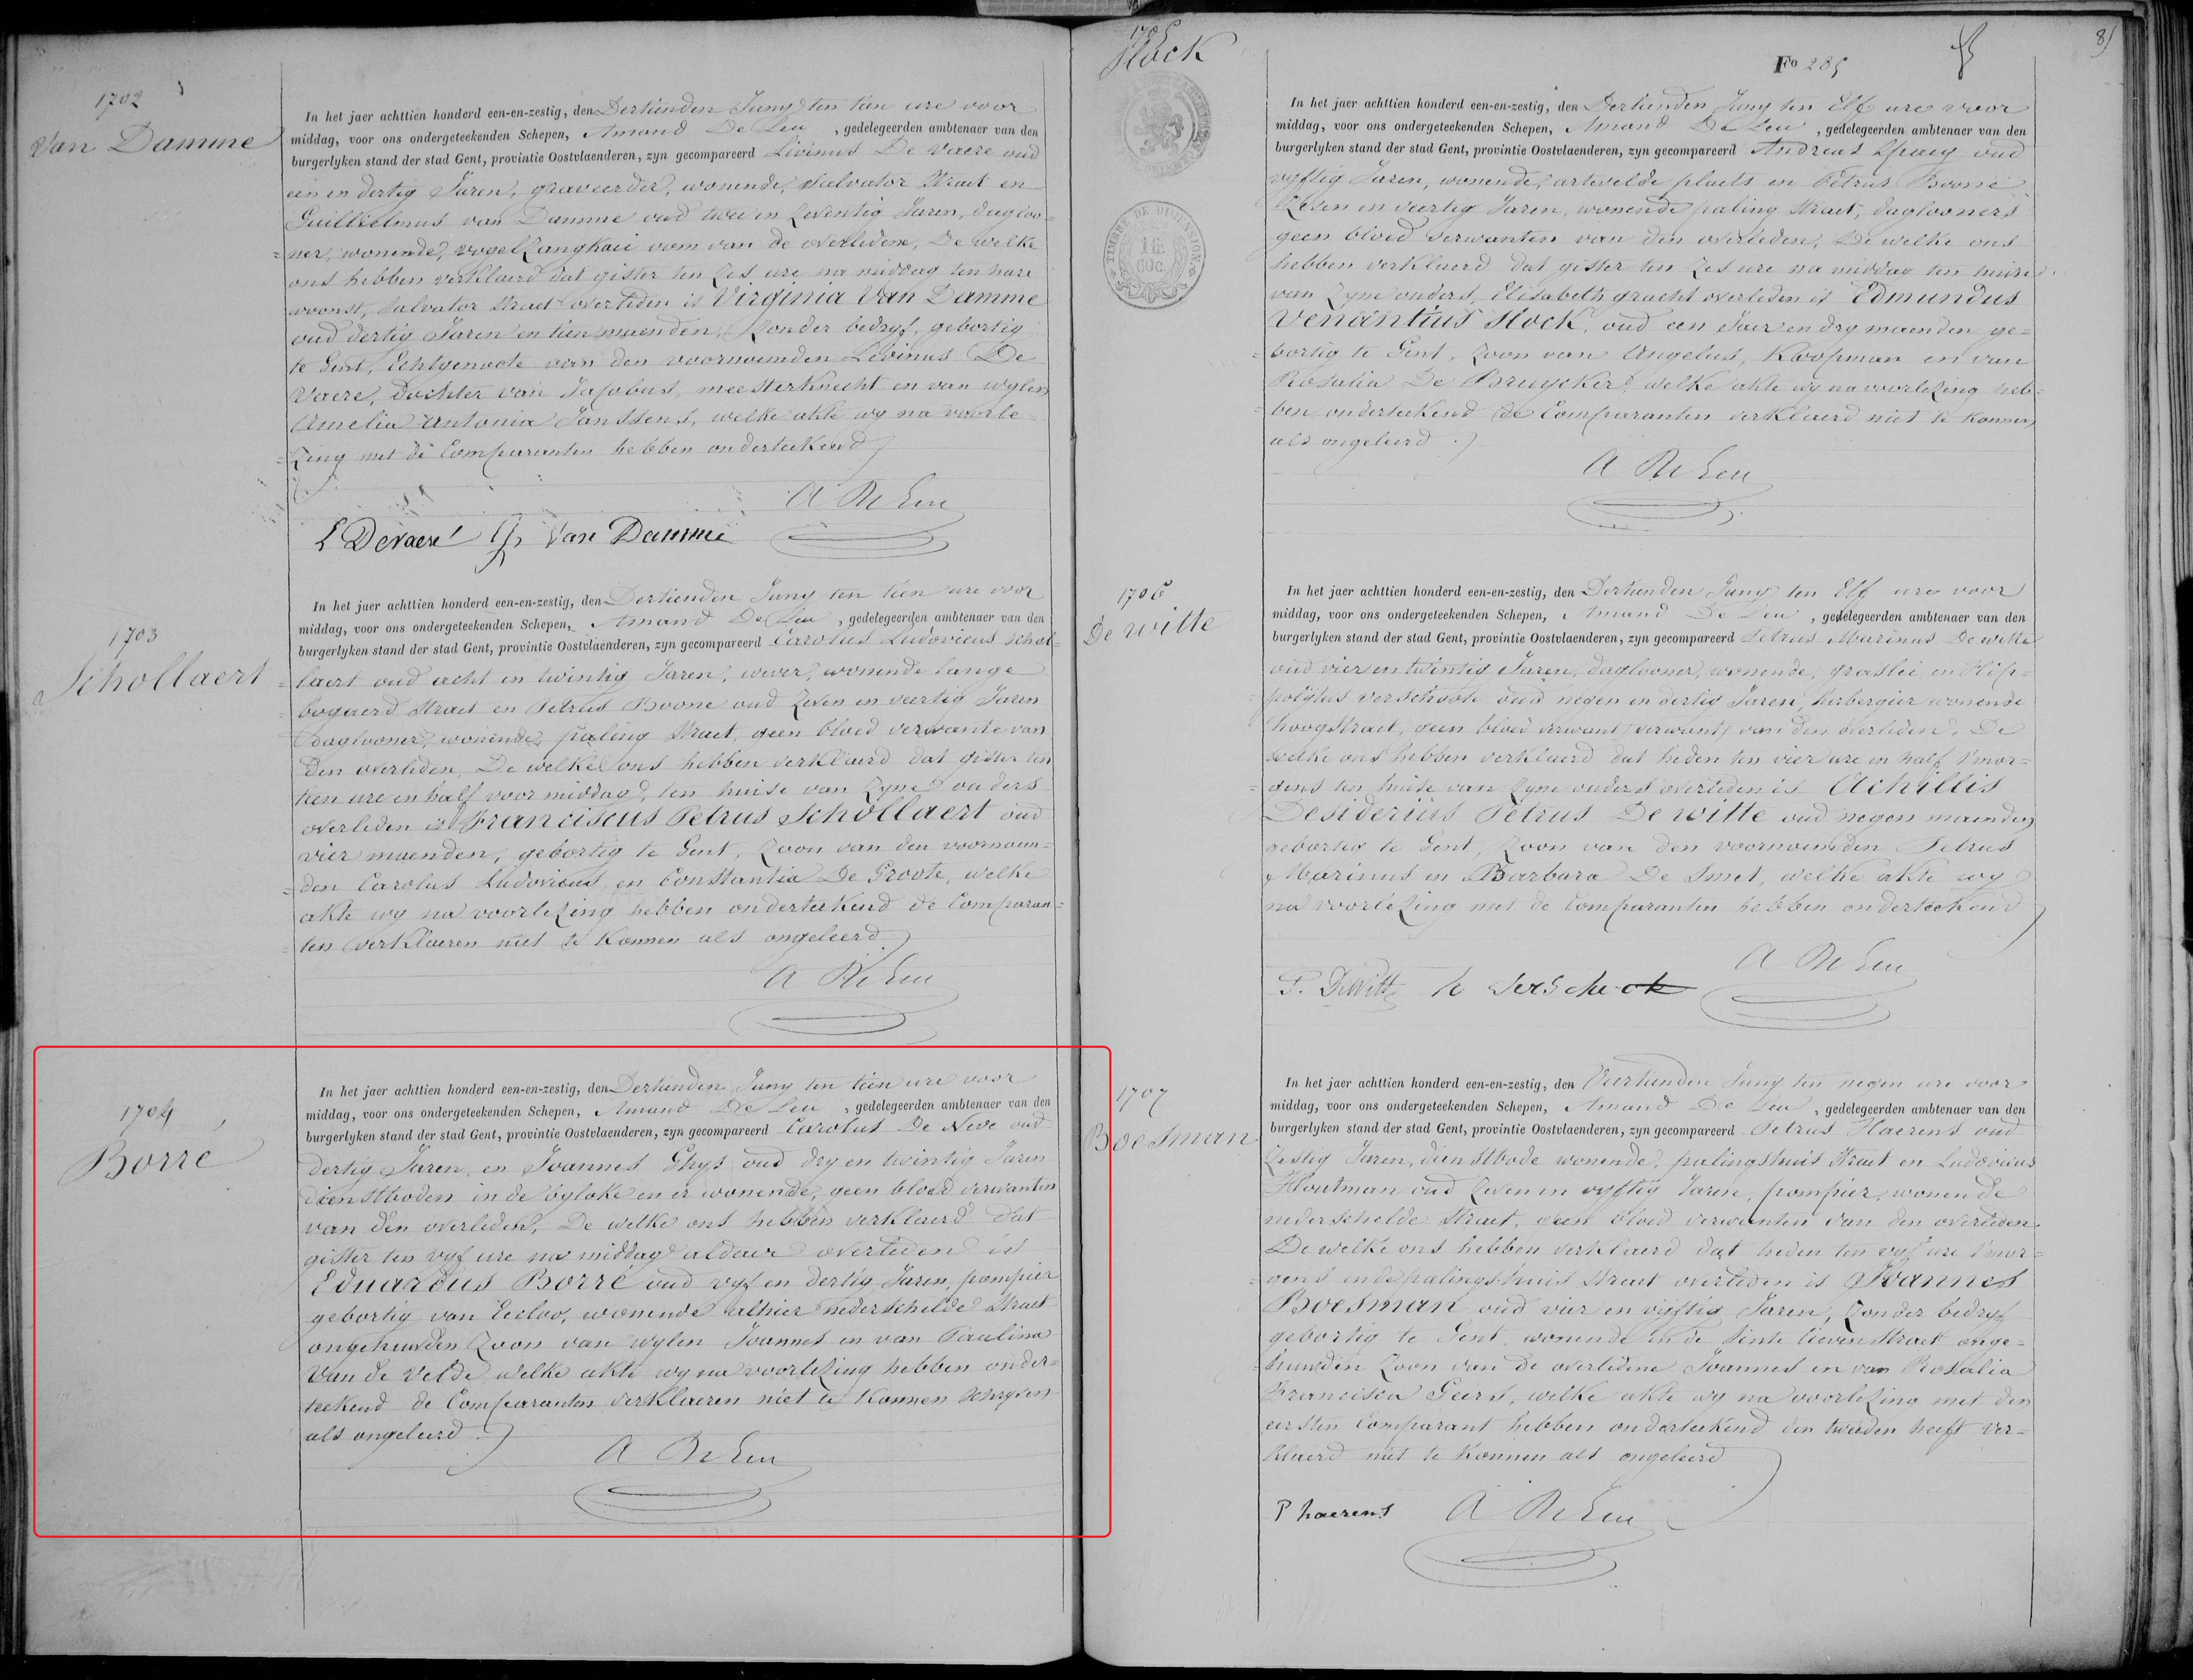 1702
Van Damme
In het jaer achttien honderd een-en-zestig, den Dertienden Juny ten tien ure voor
middag, voor ons ondergeteekenden Schepen, Amand De Leu, gedelegeerden ambtenaer van den
burgerlyken stand der stad Gent, provintie Oostvlaenderen, zyn gecompareerd Livinus De Vaere oud
een en dertig Jaren, graveerder, wonende, Salvator Straet en
Guillielmus van Damme oud twee en Zeventig Jaren, dagloo=
=ner, wonende, vogelZangkaei oom van de overledene, De welke
ons hebben verklaerd dat gister ten Zes ure na middag ten hare
woonst, Salvator Straet overleden is Virginia Van Damme
oud dertig Jaren en tien maenden, Zonder bedryf, gebortig
te Gent, Echtgenoote van den voornoemden Livinus De
Vaere, Dochter van Jacobus, meesterknecht en van wylen
Amelia Antonia Janssens, welke akte wy na voorle=
=Zing met de Comparanten hebben onderteekend
A De Leu
L Devaere G. Van Damme
1703
Schollaert
In het jaer achttien honderd een-en-zestig, den Dertienden Juny ten tien ure voor
middag, voor ons ondergeteekenden Schepen, Amand De Leu, gedelegeerden ambtenaer van den
burgerlyken stand der stad Gent, provintie Oostvlaenderen, zyn gecompareerd Carolus Ludovicus Schol=
=laert oud acht en twintig Jaren, wever, wonende lange
bogaerd Straet en Petrus Boone oud Zeven en veertig Jaren
daglooner, wonende, paling Straet, geen bloed verwante van
den overleden, De welke ons hebben verklaerd dat gister ten
tien ure en half voor middag, ten huise van Zyne ouders
overleden is Franciscus Petrus Schollaert oud
vier maenden, gebortig te Gent, Zoon van den voornoem=
=den Carolus Ludovicus en Constantia De Groote, welke
akte wy na voorleZing hebben onderteekend de Comparan=
=ten verklaeren niet te konnen als ongeleerd
A De Leu
1704
Borré
In het jaer achttien honderd een-en-zestig, den Dertienden Juny ten tien ure voor
middag, voor ons ondergeteekenden Schepen, Amand De Leu, gedelegeerden ambtenaer van den
burgerlyken stand der stad Gent, provintie Oostvlaenderen, zyn gecompareerd Carolus De Neve oud
dertig Jaren, en Joannes Ghys oud dry en twintig Jaren
dienstboden in de byloke en er wonende, geen bloed verwanten
van den overleden, De welke ons hebben verklaerd dat
gister ten vyf ure na middag aldaer overleden is
Eduardus Borré oud vyf en dertig Jaren, pompier
gebortig van Eecloo, wonende alhier nederschelde Straet
ongehuwden Zoon van wylen Joannes en van Paulina
Van de Velde welke akte wy na voorleZing hebben onder=
teekend de Comparanten verklaeren niet te konnen schryven
als ongeleerd
A De Leu
1705
Hock
Fo 285
81
TIMBRE DE DIMENSION
1 fr. 60 c.
In het jaer achttien honderd een-en-zestig, den Dertienden Juny ten Elf ure voor
middag, voor ons ondergeteekenden Schepen, Amand De Leu, gedelegeerden ambtenaer van den
burgerlyken stand der stad Gent, provintie Oostvlaenderen, zyn gecompareerd Andreas Spaey oud
vyftig Jaren, wonende, artevelde plaets en Petrus Boone
Zeven en veertig Jaren, wonende paling Straet, daglooners
geen bloed verwanten van den overleden, De welke ons
hebben verklaerd dat gister ten Zes ure na middag ten huise
van Zyne ouders, Elisabeth gracht overleden is Edmundus
Venantius Hock, oud een Jaer en dry maenden ge=
=bortig te Gent, Zoon van Angelus, Koopman en van
Rosalia De Bruycker, welke akte wy na voorleZing heb=
=ben onderteekend de Comparanten verklaerd niet te konnen
als ongeleerd
A De Leu
1706
De Witte
In het jaer achttien honderd een-en-zestig, den Dertienden Juny ten Elf ure voor
middag, voor ons ondergeteekenden Schepen, Amand De Leu, gedelegeerden ambtenaer van den
burgerlyken stand der stad Gent, provintie Oostvlaenderen, zyn gecompareerd Petrus Marinus De Witte
oud vier en twintig Jaren, daglooner, wonende, graslei en Hip=
=polytus Verschoote oud negen en dertig Jaren, herbergier wonende
hoogstraet, geen bloed verwant (verwant) van den overleden, De
welke ons hebben verklaerd dat heden ten vier ure en half s'mor=
=gens ten huise van Zyne ouders overleden is Achillis
Desiderius Petrus De Witte oud negen maenden
gebortig te Gent, Zoon van den voornoemden Petrus
Marinus en Barbara De Smet, welke akte wy
na voorleZing met de Comparanten hebben onderteekend
A De Leu
P. DeWitt
1707
Boesman
In het jaer achttien honderd een-en-zestig, den Veertienden Juny ten negen ure voor
middag, voor ons ondergeteekenden Schepen, Amand De Leu, gedelegeerden ambtenaer van den
burgerlyken stand der stad Gent, provintie Oostvlaenderen, zyn gecompareerd Petrus Haerens oud
Zestig Jaren, dienstbode wonende, palingshuis Straet en Ludovicus
Houtman oud Zeven en vyftig Jaren, pompier, wonende
nederschelde Straet, geen bloed verwanten van den overleden.
De welke ons hebben verklaerd dat heden ten vyf ure s'mor=
=gens in de palingshuis Straet overleden is Joannes
Boesman oud vier en vyftig Jaren, Zonder bedryf
gebortig te Gent, wonende in de Sinte Lieven Straet onge=
=huwden Zoon van de overledene Joannes en van Rosalia
Francisca Geers, welke akte wy na voorleZing met den
eersten Comparant hebben onderteekend den tweeden heeft ver=
klaerd niet te konnen als ongeleerd
P haerens A De Leu